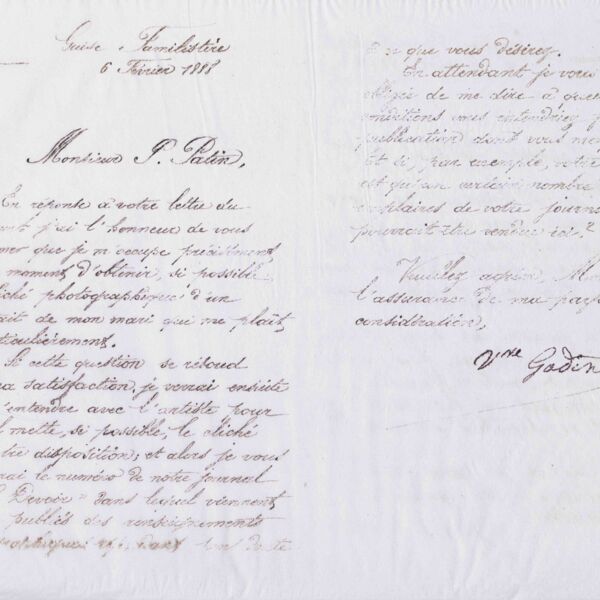 Guise - Familistère
6 Février 1888
Monsieur P. Patin,
En réponse à votre lettre du
j'ai l'honneur de vous
mer que je m'occupe précisément,
moment, d'obtenir, si possible
liché photographique d'un
ait de mon mari qui me plaît,
ticulièrement.
Si cette question se résoud
ma satisfaction, je verrai ensuite
m'entendre avec l'artiste pour
il mette, si possible, le cliché
tre disposition; et alors je vous
rai le numéro de notre journal
Devoir" dans lequel viennent
publiés des renseignements
dans
ce que vous désirez.
En attendant je vous
obligée de me dire à quel
conditions vous entendriez f
publication dont vous me
Et si, par exemple, votre
est qu'un certain nombre
emplaires de votre journa
pourrait être vendue ici?
Veuillez agréer, Mo
l'assurance de ma parf
considération,
Vve Godin